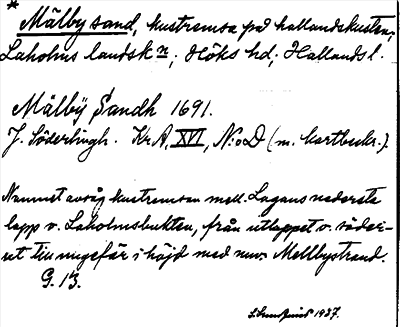 * Mälby sand, kustremsa på hallandskusten;
Laholms landsk n; Höks hd; Hallands l.
Mälbÿ Sandh 1691.
J. Söderlingh. Kr A, XVI, N:o D (m. kartbeskr.).
Namnet avsåg kustremsan mell. Lagans nedersta
lopp o. Laholmsbukten, från utloppet o. söder-
ut till ungefär i höjd med nuv. Mellbystrand.
G. 13.
1937.